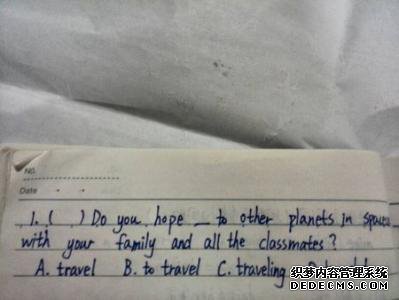 No.
Date
1. ( ) Do you hope _ to other planets in space
with your family and all the classmates?
A. travel B. to travel C. traveling
www.manfen5.com